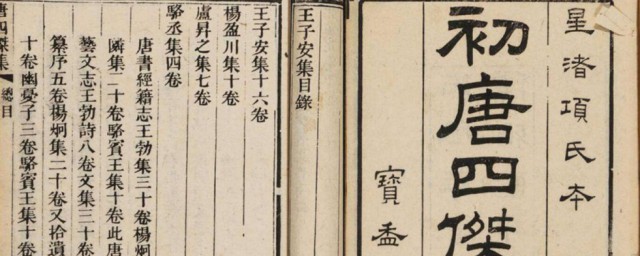 星渚項氏本
初唐四傑
寶盉
王子安集目錄
王子安集十六卷
楊盈川集十卷
盧昇之集七卷
駱丞集四卷
唐書經籍志王勃集三十卷楊炯
集二十卷駱賓王集十卷此唐
藝文志王勃詩八卷文集三十卷
纂序五卷楊炯集二十卷又拾遺
十卷幽憂子三卷駱賓王集十卷
唐四傑集
總目